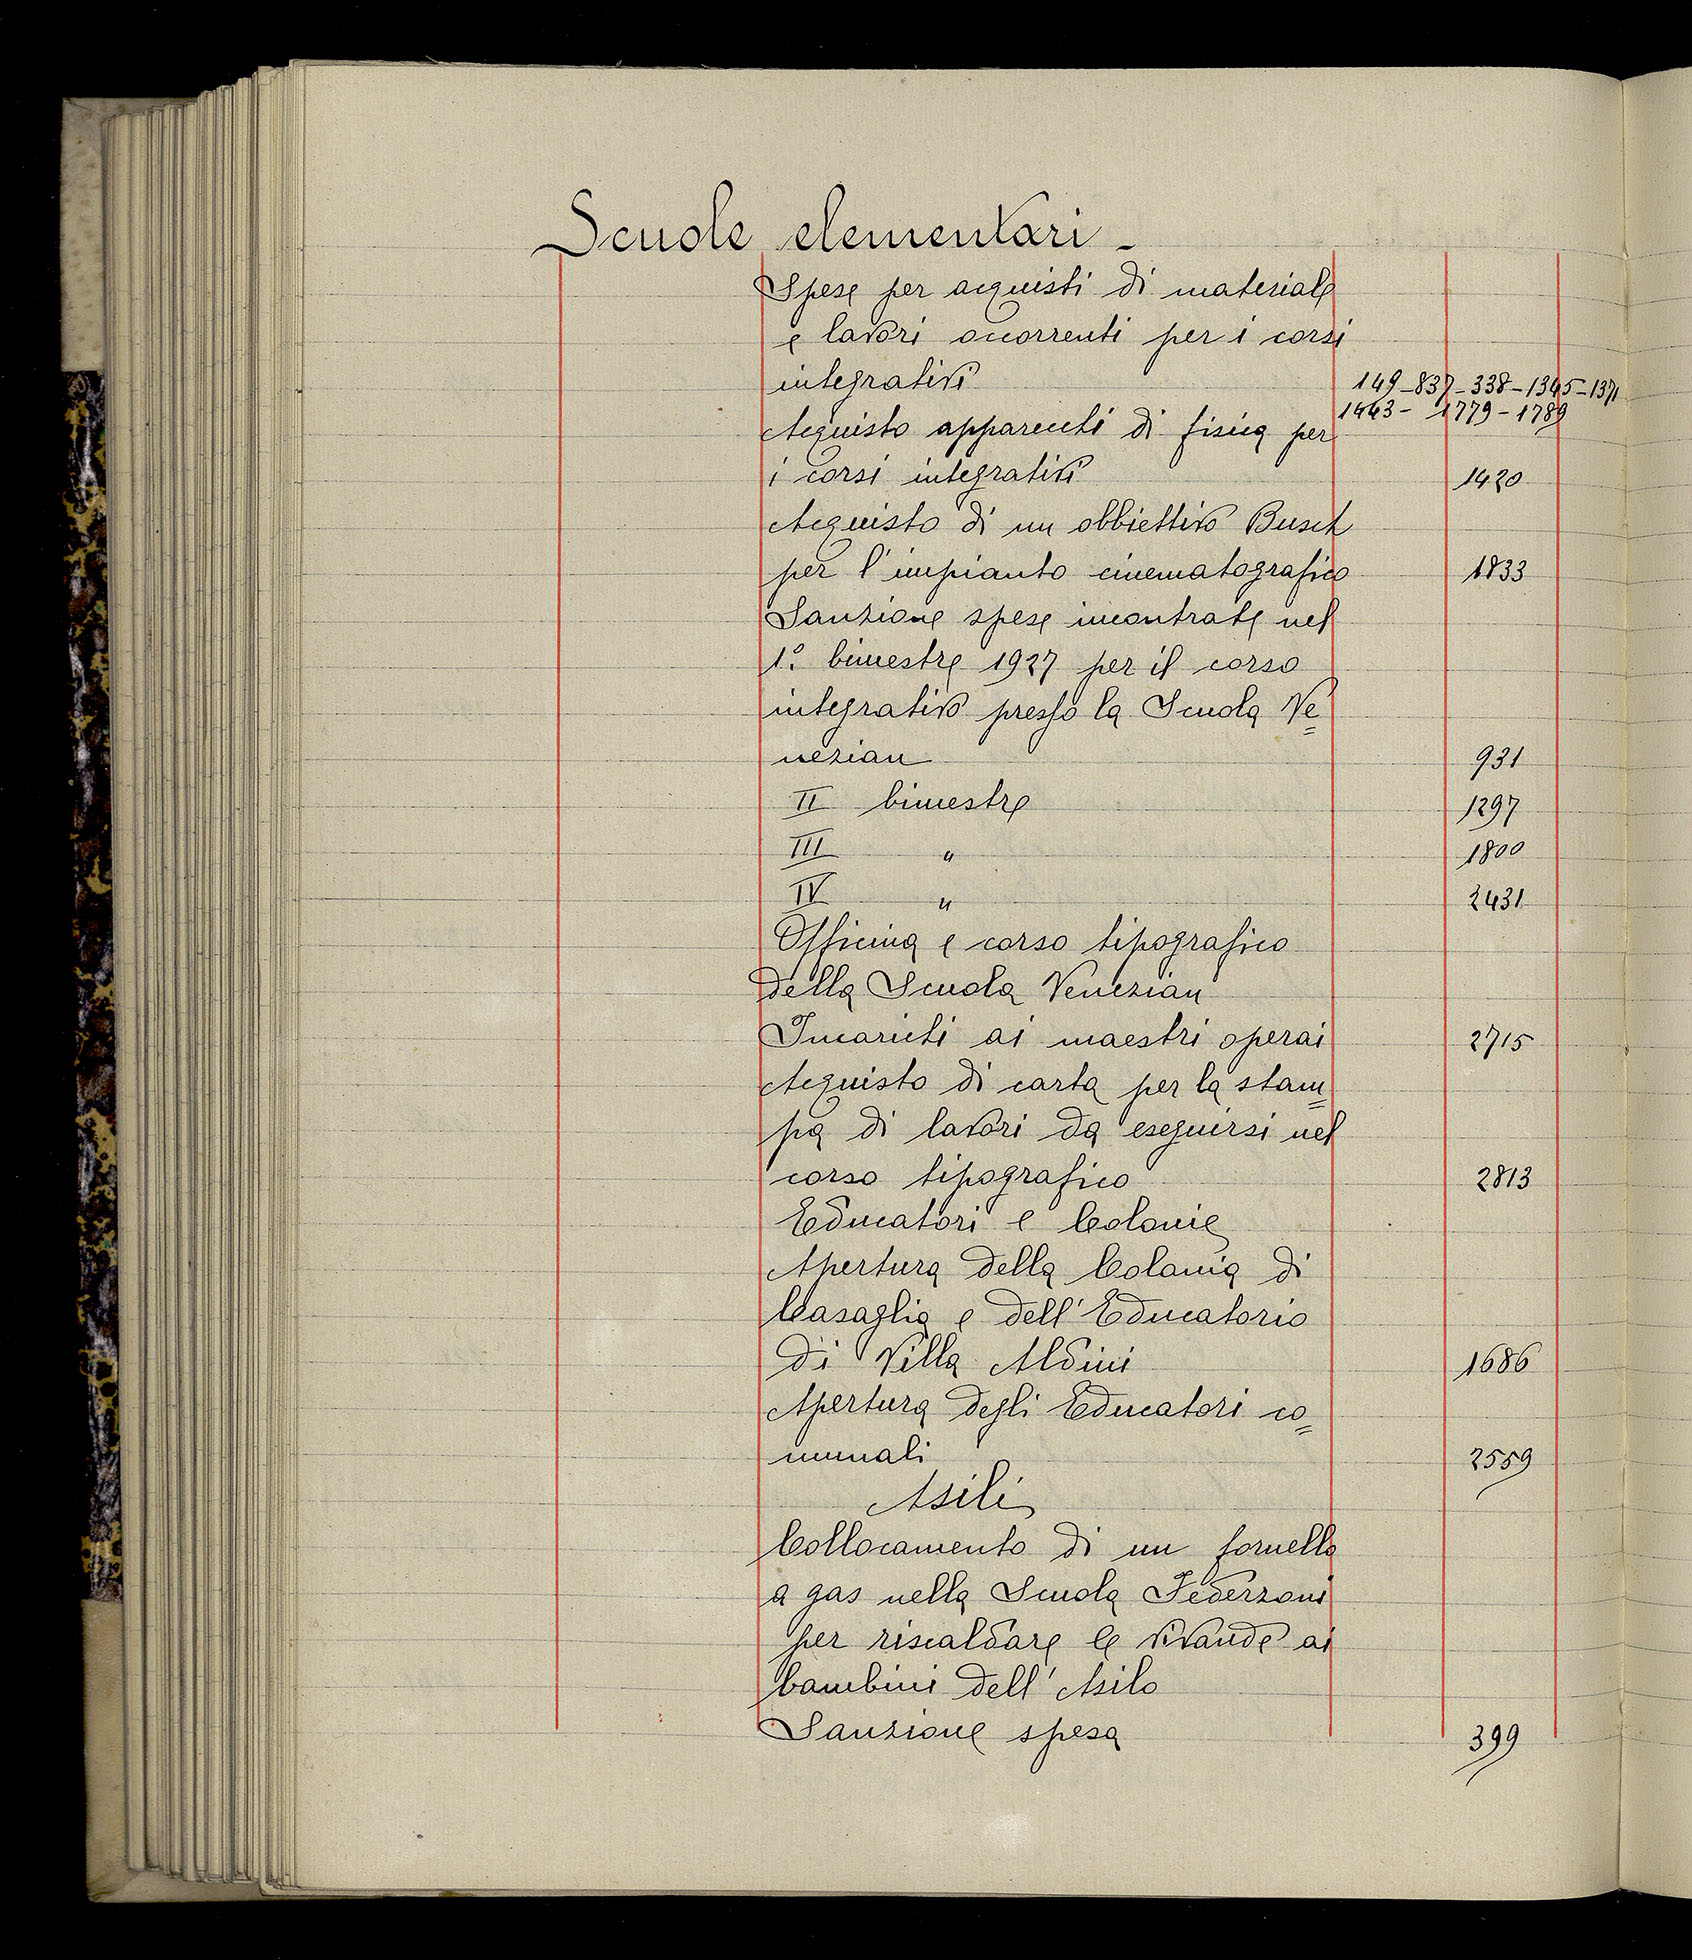 Scuole elementari -
Spese per acquisti di materiale
e lavori occorrenti per i corsi
integrativi 149-837-338-1345-1371
1443- 1779-1789
Acquisto apparecchi di fisica per
i corsi integrativi 1420
Acquisto di un obbiettivo Busch
per l'impianto cinematografico 1833
Sanzione spese incontrate nel
1.º bimestre 1927 per il corso
integrativo presso la Scuola Ve=
nezian 931
II bimestre 1297
III " 1800
IV " 2431
Officina e corso tipografico
della Scuola Venezian
Incarichi ai maestri operai 2715
Acquisto di carta per la stam=
pa di lavori da eseguirsi nel
corso tipografico 2813
Educatori e Colonie
Apertura della Colonia di
Casaglia e dell'Educatorio
di Villa Aldini 1686
Apertura degli Educatori co=
munali 2559
Asili
Collocamento di un fornello
a gas nella Scuola Federzoni
per riscaldare le vivande ai
bambini dell'Asilo
Sanzione spesa 399